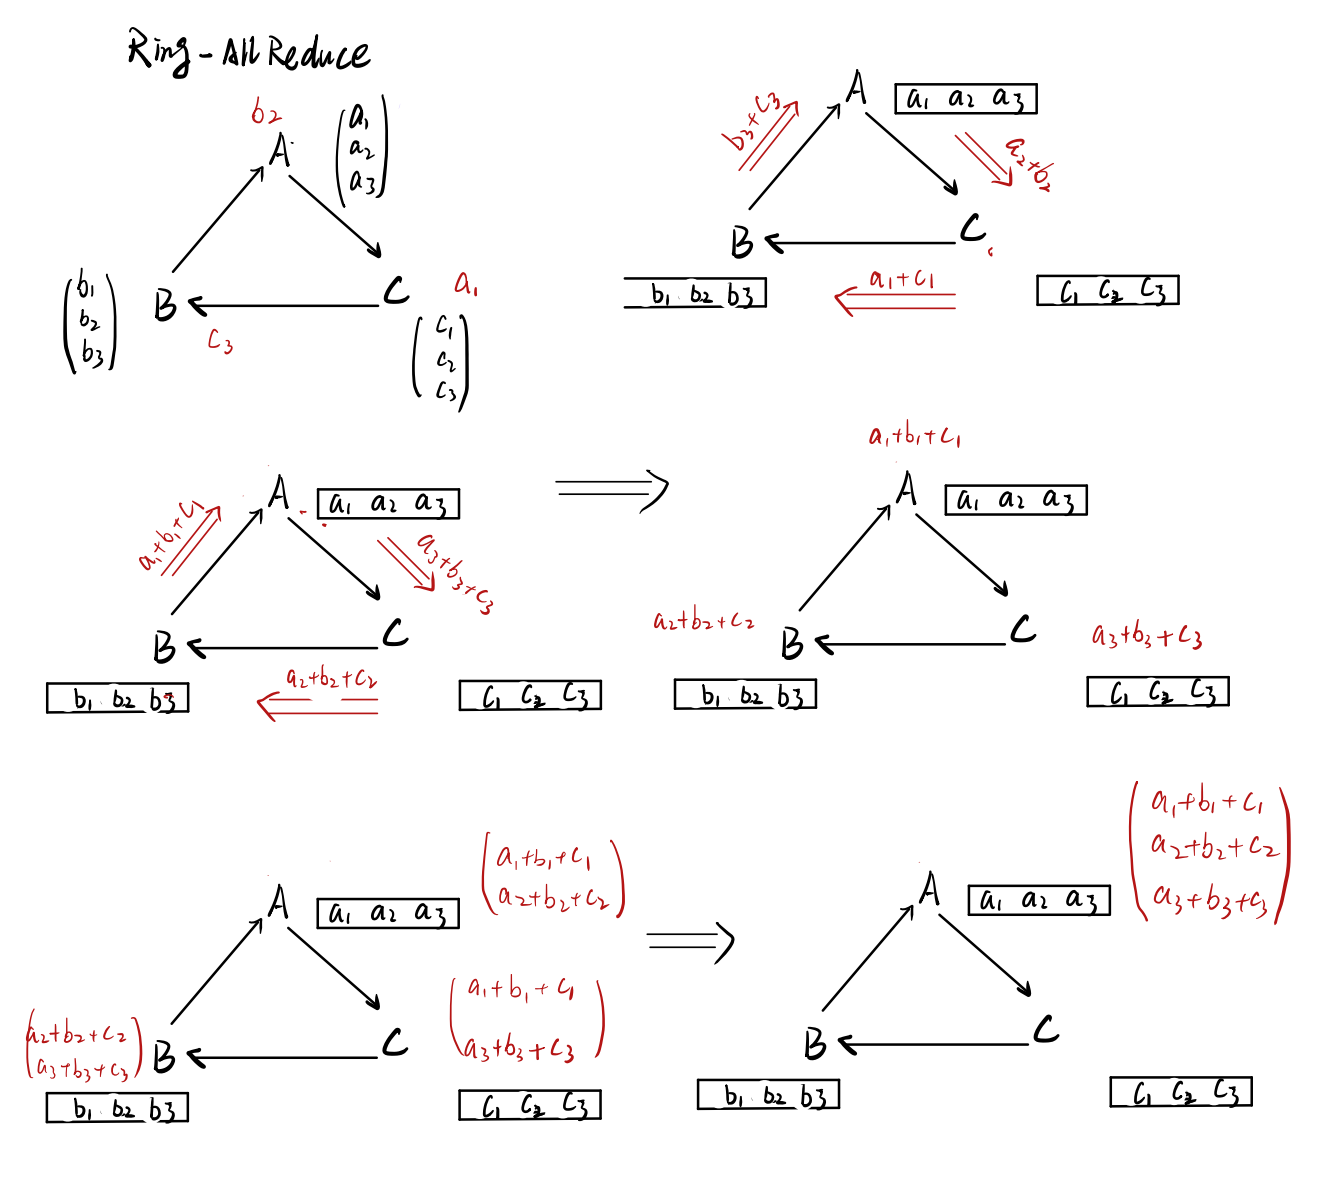 Ring-AllReduce
b2
A
a1
a2
a3
b1
b2
b3
B
C
a1
c3
c1
c2
c3
b3+c3
A
a1 a2 a3
a2+b2
B
C
b1 b2 b3
a1+c1
c1 c2 c3
a1+b1+c1
A
a1 a2 a3
a3+b3+c3
B
C
a2+b2+c2
b1 b2 b3
c1 c2 c3
a1+b1+c1
A
a1 a2 a3
a2+b2+c2
B
C
a3+b3+c3
b1 b2 b3
c1 c2 c3
a1+b1+c1
a2+b2+c2
A
a1 a2 a3
a1+b1+c1
a3+b3+c3
a2+b2+c2
a3+b3+c3
B
C
b1 b2 b3
c1 c2 c3
a1+b1+c1
a2+b2+c2
a3+b3+c3
A
a1 a2 a3
B
C
b1 b2 b3
c1 c2 c3